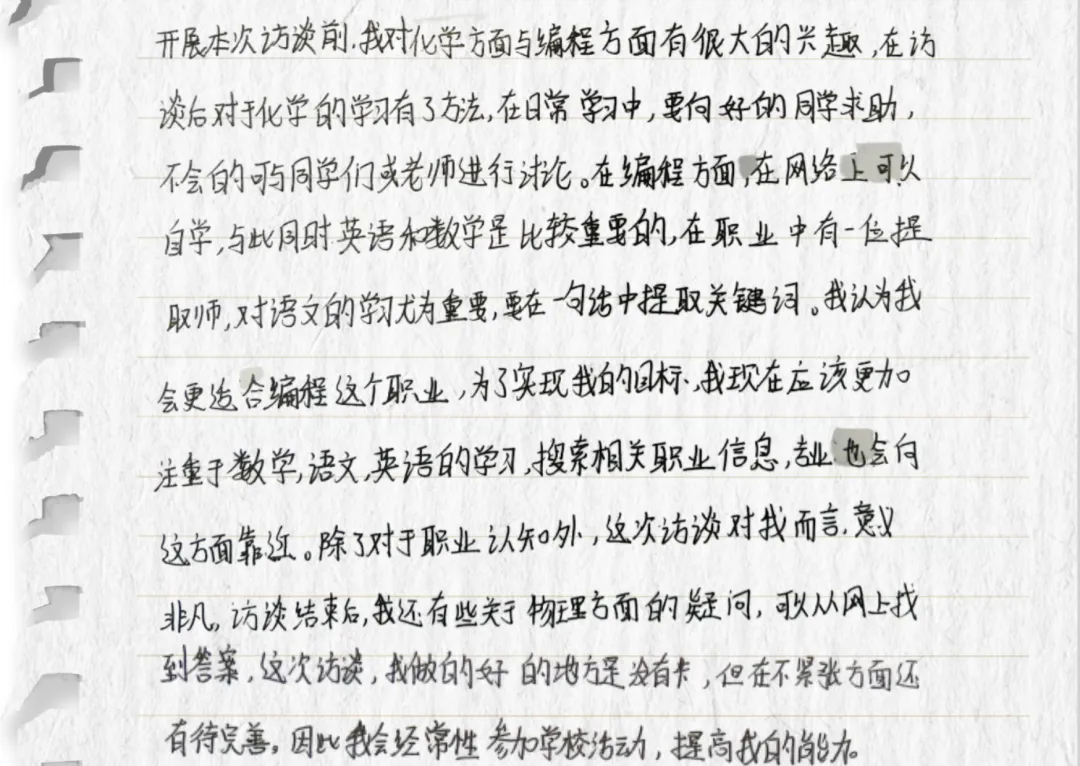 开展本次访谈前，我对化学方面与编程方面有很大的兴趣，在访
谈后对于化学的学习有了方法，在日常学习中，要向好的同学求助，
不会的可与同学们或老师进行讨论。在编程方面，在网络上可以
自学，与此同时英语和数学是比较重要的，在职业中有一位提
取师，对语文的学习尤为重要，要在一句话中提取关键词。我认为我
会更适合编程这个职业，为了实现我的目标，我现在应该更加
注重于数学，语文，英语的学习，搜索相关职业信息，专业也会向
这方面靠近。除了对于职业认知外，这次访谈对我而言，意义
非凡，访谈结束后，我还有些关于物理方面的疑问，可以从网上找
到答案，这次访谈，我做的好的地方是没有卡，但在不紧张方面还
有待完善。因此我会经常性参加学校活动，提高我的能力。